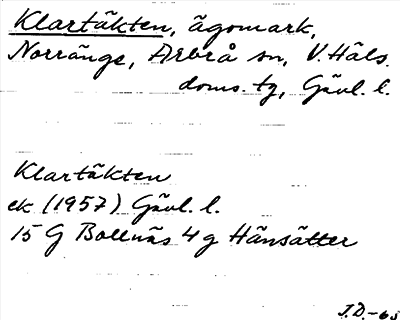 Klartäkten, ägomark,
Norränge, Arbrå sn, V. Häls.
doms. tg, Gävl. l.
Klartäkten
ek (1957) Gävl. l.
15 G Bollnäs 4 g Hänsätter
J.D.-65